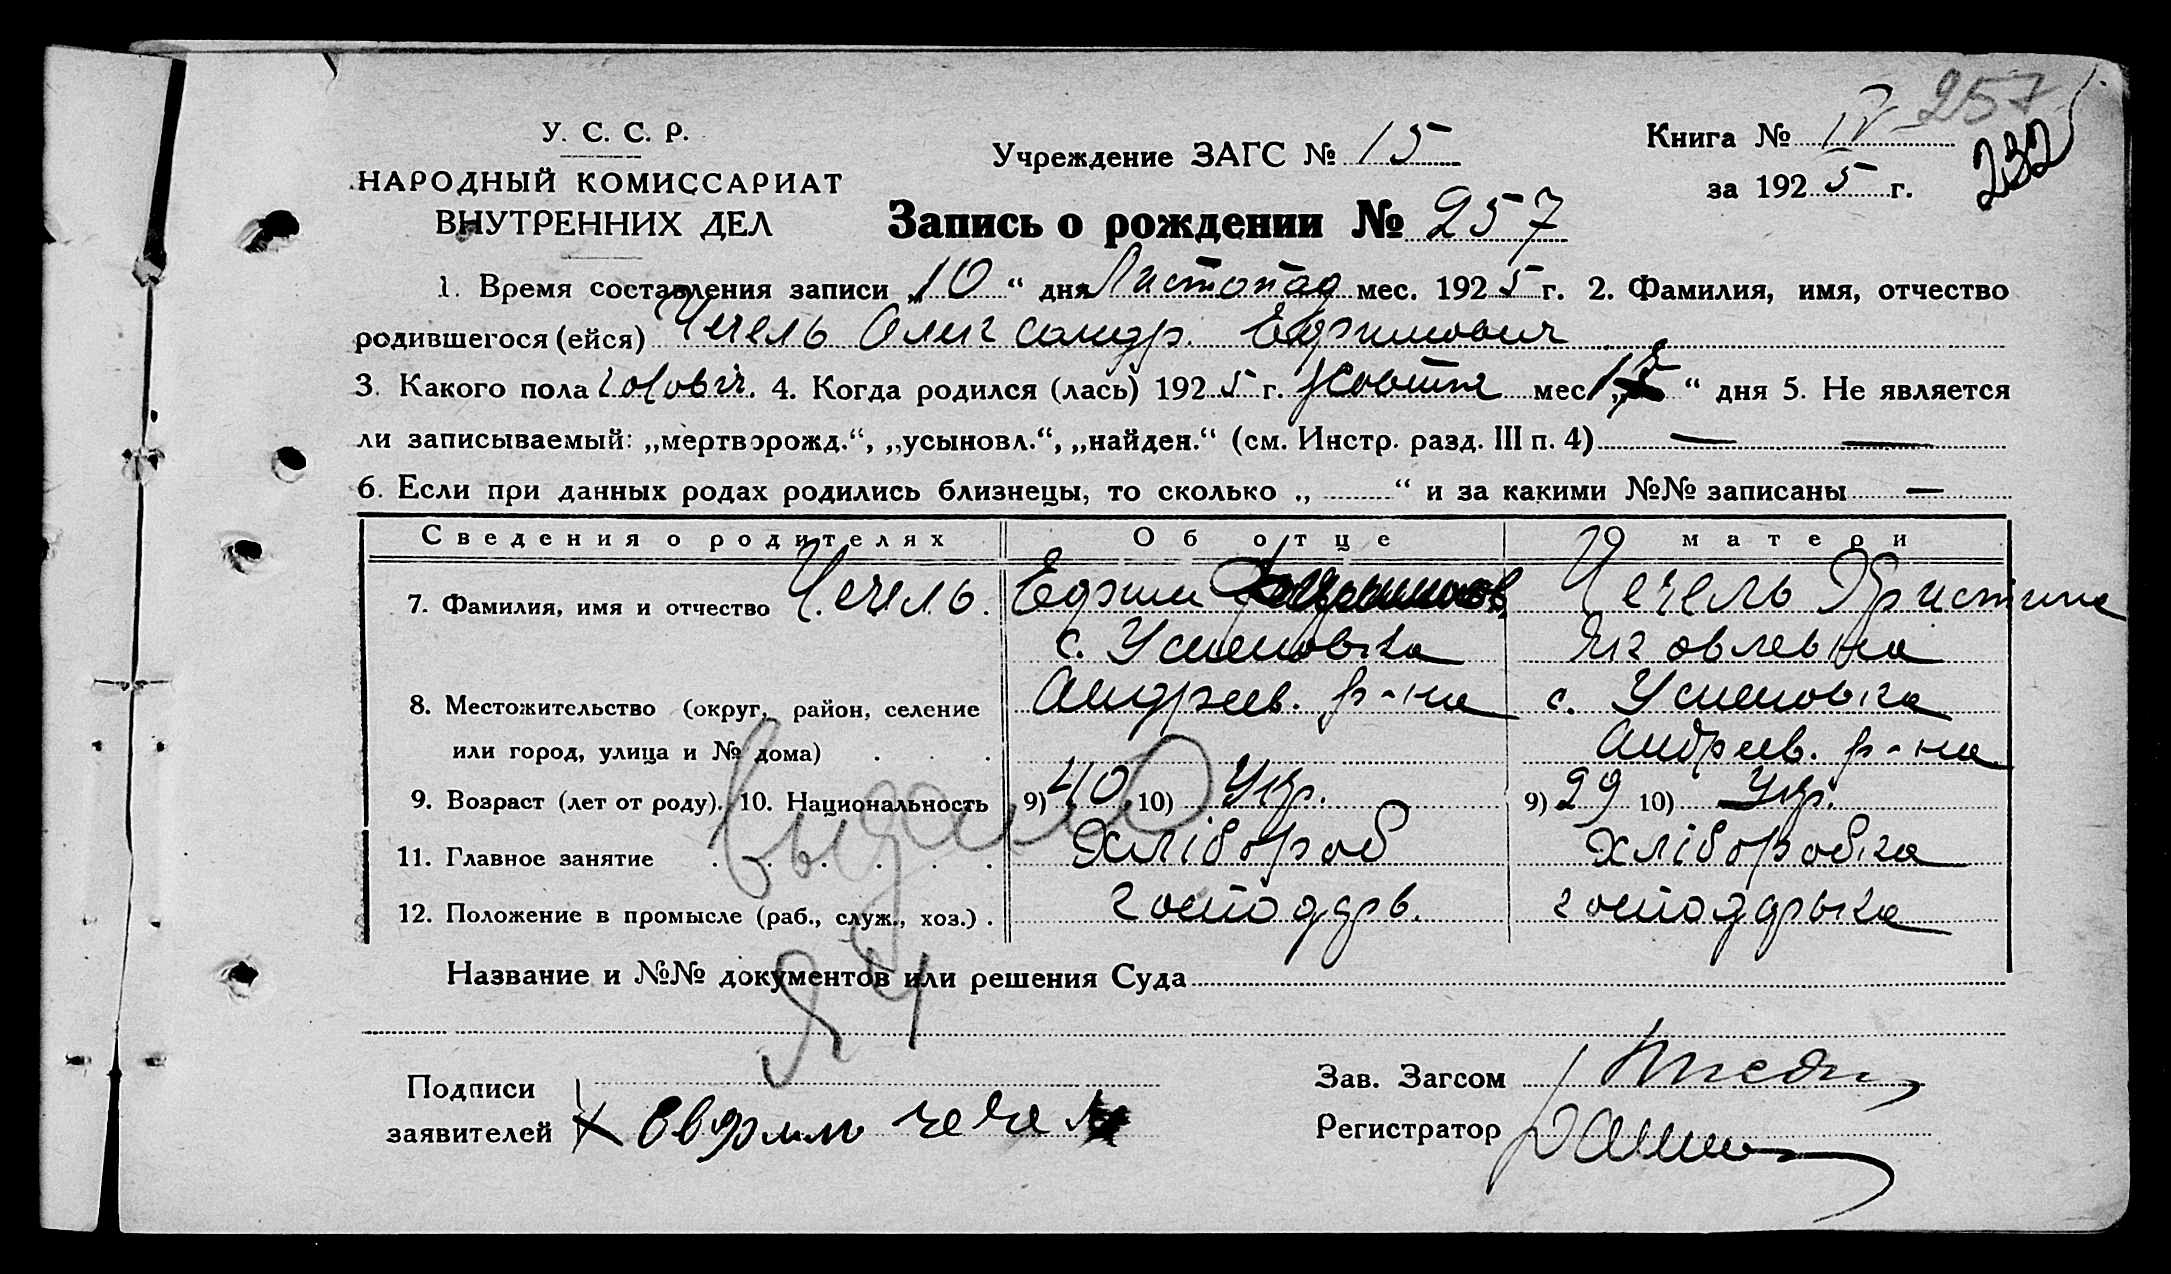 257
У. С. С. Р.
Учреждение ЗАГС № 15
Книга № IV
232
НАРОДНЫЙ КОМИССАРИАТ
за 1925 г.
ВНУТРЕННИХ ДЕЛ
Запись о рождении № 257
1. Время составления записи „10“ дня Листопад мес. 1925 г. 2. Фамилия, имя, отчество
родившегося (ейся) Чечель Олександр Ефимович
3. Какого пола 4. Когда родился (лась) 1925 г. Жовтня мес „ “ дня 5. Не является
ли записываемый: „мертворожд.“, „усыновл.“, „найден.“ (см. Инстр. разд. III п. 4) — —
6. Если при данных родах родились близнецы, то сколько „ “ и за какими №№ записаны —
Сведения о родителях Об отце О матери
7. Фамилия, имя и отчество Чечель Ефим Чечель Христина
с. Успеновка Яковлевна
8. Местожительство (округ, район, селение Андреев. р-на с. Успеновка
или город, улица и № дома) . . . Андреев. р-на
9. Возраст (лет от роду). 10. Национальность 9) 40 10) Укр. 9) 29 10) Укр.
11. Главное занятие . . . . . . Хлібороб Хліборобка
12. Положение в промысле (раб., служ., хоз.) . господарь. господарька
Выдано
Название и №№ документов или решения Суда
Подписи
заявителей Евфим чечел
Зав. Загсом
Регистратор